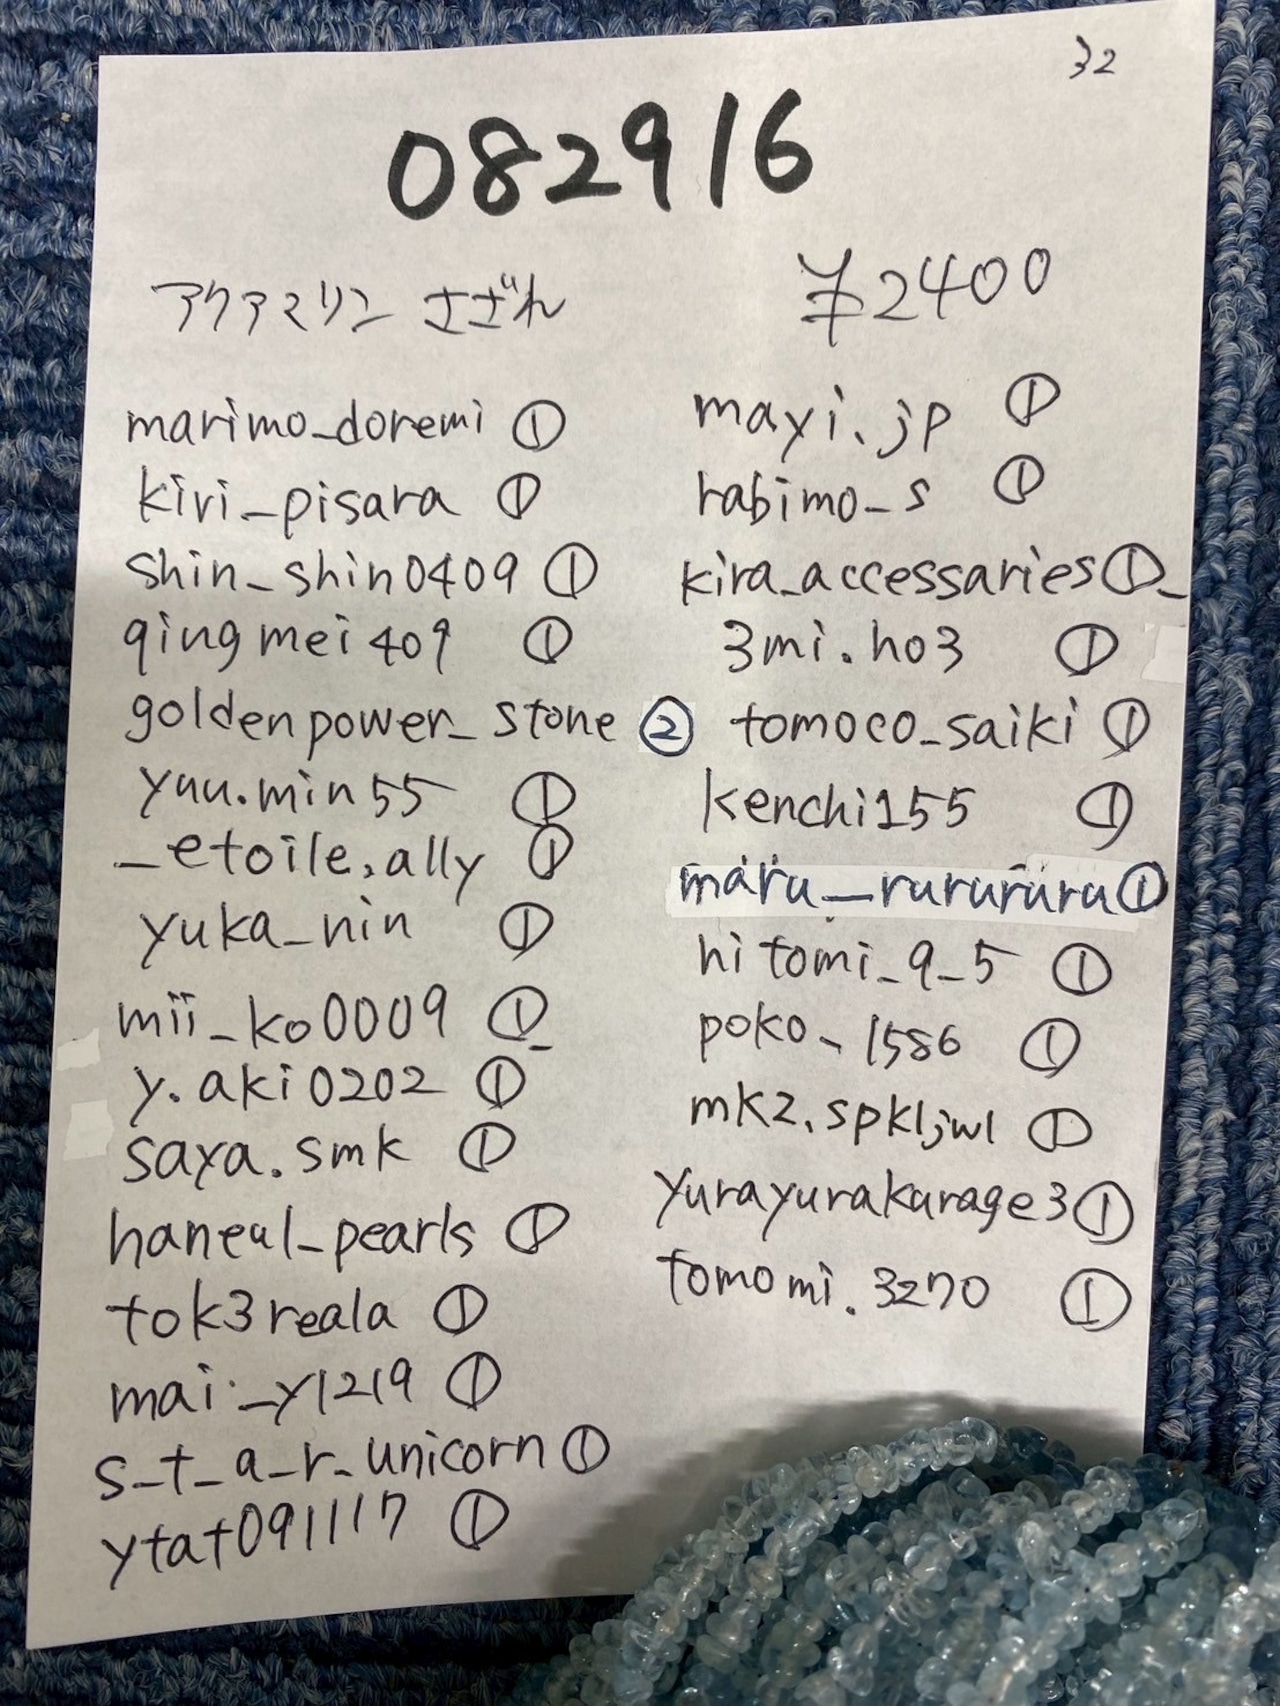 32
082916
アクアマリン さざれ ¥2400
marimo_doremi ①
kiri_pisara ①
shin_shin0409 ①
qingmei409 ①
goldenpower_stone ②
yuu.min55 ①
_etoile.ally ①
yuka_nin ①
mii_ko0009 ①_
y.aki0202 ①
saya.smk ①
haneul_pearls ①
tok3reala ①
mai_y1219 ①
s_t_a_r_unicorn ①
ytat091117 ①
mayi.jp ①
rabimo_s ①
kira_accessaries①_
3mi.ho3 ①
tomoco_saiki ①
kenchi155 ①
maru_rurururu①
hitomi_9_5 ①
poko_1586 ①
mk2.spkljwl ①
yurayurakurage3①
tomomi.3270 ①